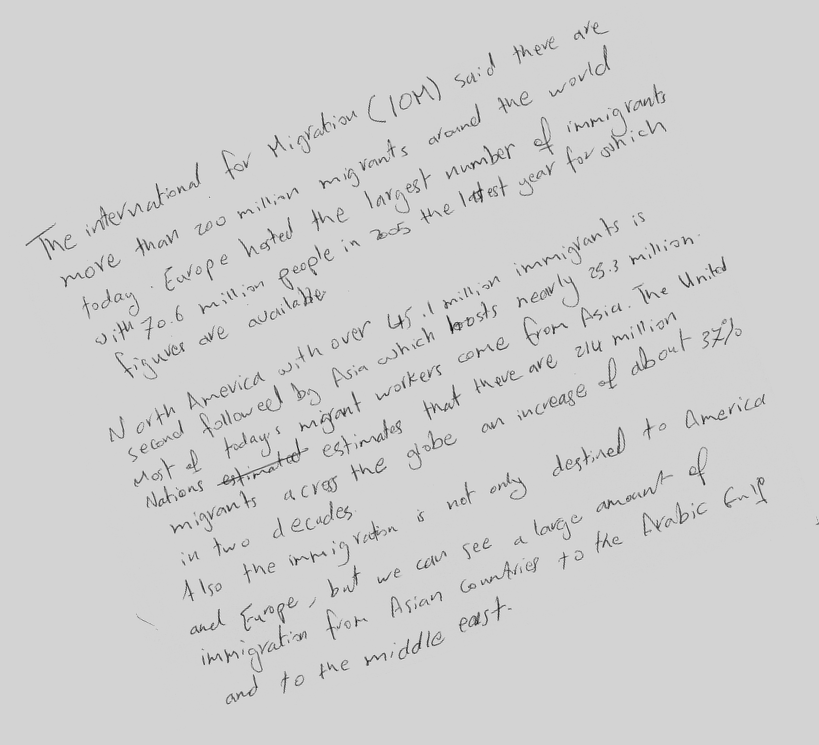 The international for Migration (IOM) said there are
more than 200 million migrants around the world
today. Europe hosted the largest number of immigrants
with 70.6 million people in 2005 the latest year for which
figures are available
North America with over 45.1 million immigrants is
second followed by Asia which hosts nearly 25.3 million.
Most of today's migrant workers come from Asia. The United
Nations estimated estimates that there are 214 million
migrants across the globe an increase of about 37%
in two decades.
Also the immigration is not only destined to America
and Europe, but we can see a large amount of
immigration from Asian Countries to the Arabic Gulf
and to the middle east.